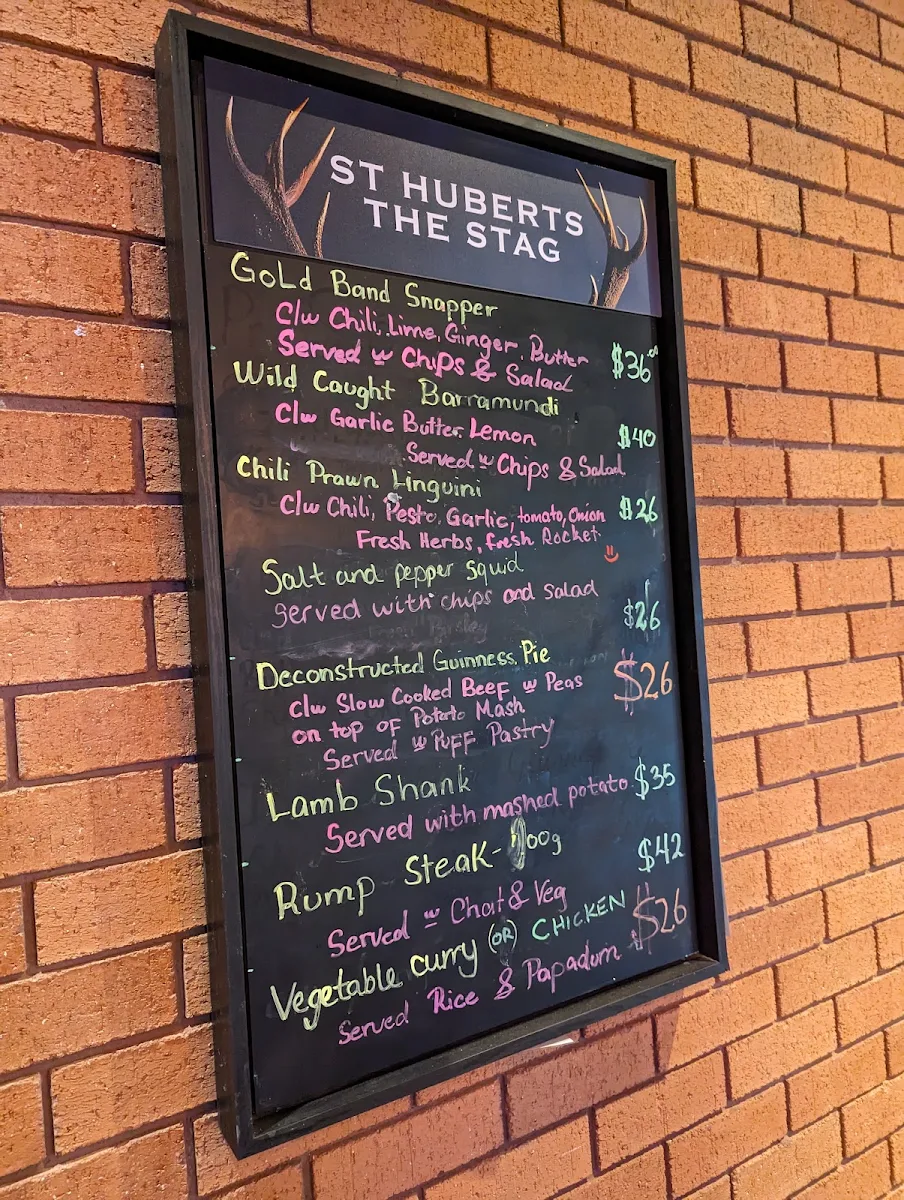 ST HUBERTS
THE STAG
Gold Band Snapper
C/w Chili, Lime, Ginger, Butter
Served w Chips & Salad $36.00
Wild Caught Barramundi
C/w Garlic Butter, Lemon $40
Served w Chips & Salad
Chili Prawn Linguini
C/w Chili, Pesto, Garlic, tomato, Onion $26
Fresh Herbs, fresh Rocket.
Salt and pepper squid
served with chips and salad
$26
Deconstructed Guinness Pie
C/w Slow Cooked Beef w Peas $26
on top of Potato Mash
Served w Puff Pastry
Lamb Shank
Served with mashed potato $35
Rump Steak-
Served w Chat & Veg $42
Vegetable curry OR CHICKEN $26
Served Rice & Papadum